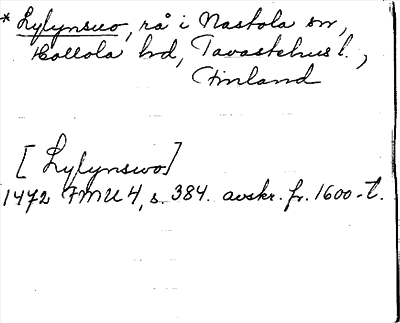 * Lylynsuo, rå i Nastola sn,
Hollola hd, Tavastehus l.,
Finland
[Lylynswo]
1472 FMU 4, s. 384. avskr. fr. 1600-t.